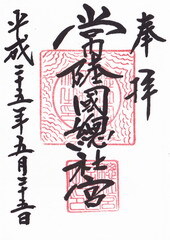 奉拝
常陸國總社宮
平成二十五年五月二十五日